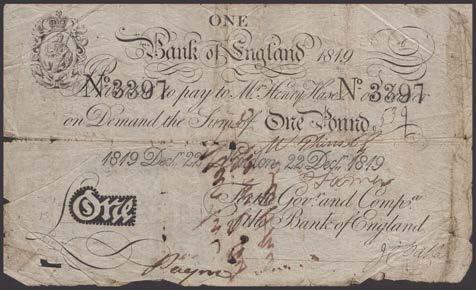 ONE
Bank of England 1819
No 3397 to pay to Mr Henry Hase No 3397
on Demand the Sum of One Pound
1819 Decr 22 London 22 Decr 1819
For the Govr and Compa
of the Bank of England
One